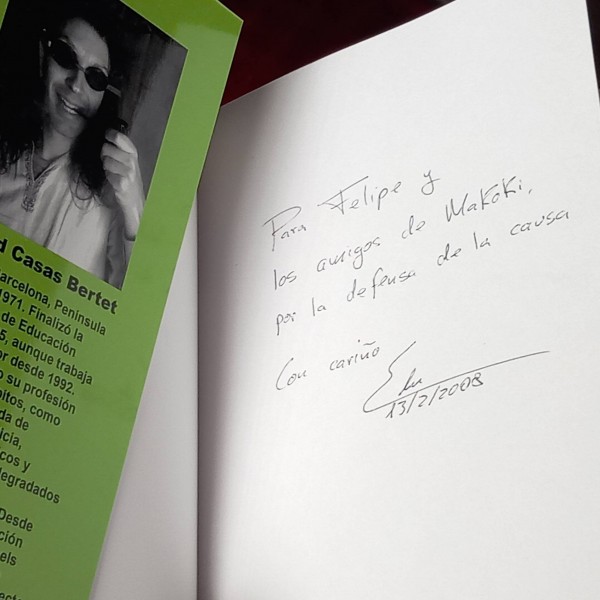 d Casas Bertet
arcelona, Península
1971. Finalizó la
de Educación
5, aunque trabaja
or desde 1992.
o su profesión
bitos, como
da de
icia,
cos y
degradados
Desde
ción
els
Para Felipe y
los amigos de Makoki,
por la defensa de la causa
Con cariño
Edu
13/2/2008